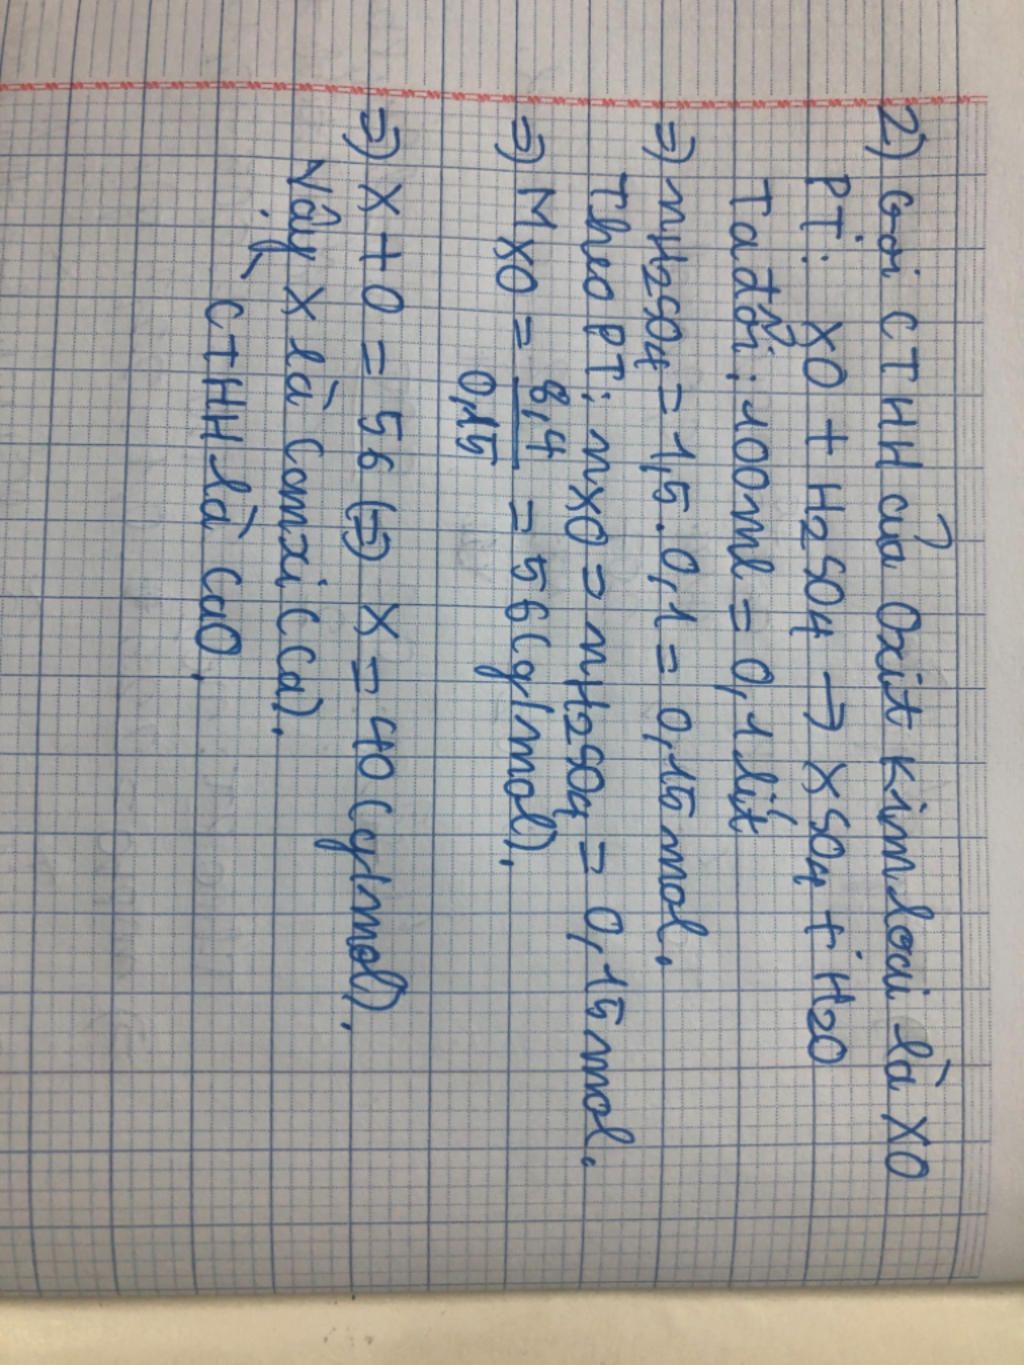 2) Gọi CTHH của Oxit kim loại là XO
PT: XO + H2SO4 → XSO4 + H2O
Ta đổi: 100ml = 0,1 lít
=) nH2SO4 = 1,5. 0,1 = 0,15 mol.
Theo PT: nXO = nH2SO4 = 0,15 mol.
=) MXO = 8,4/0,15 = 56 (g/mol).
=) X + O = 56 (=) X = 40 (g/mol).
Vậy X là Canxi (Ca).
CTHH là CaO.